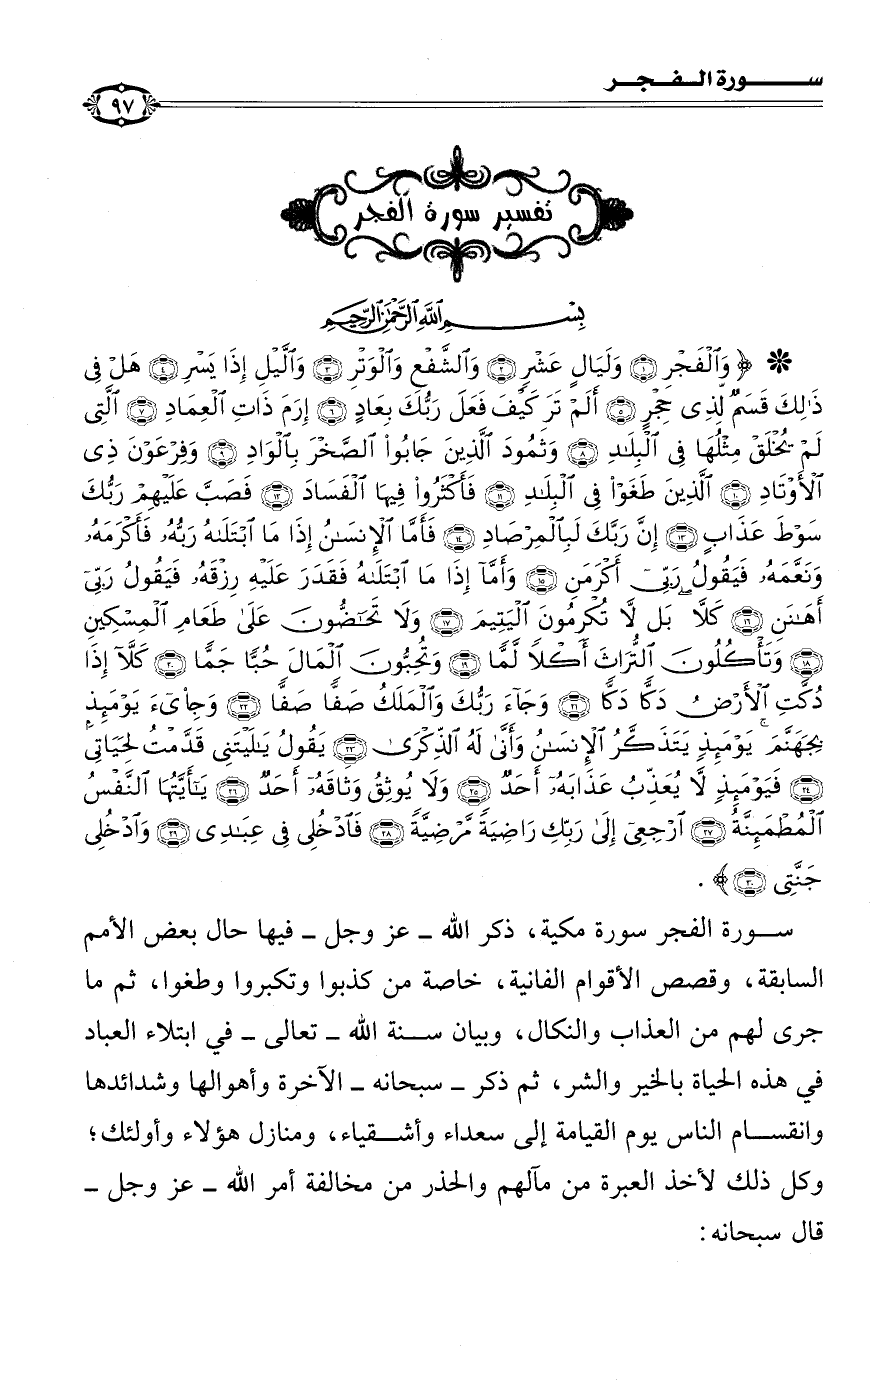 سورة الفجر
٩٧
تفسير سورة الفجر
بِسْمِ ٱللَّهِ ٱلرَّحْمَٰنِ ٱلرَّحِيمِ
* ﴿ وَٱلْفَجْرِ ﴿١﴾ وَلَيَالٍ عَشْرٍ ﴿٢﴾ وَٱلشَّفْعِ وَٱلْوَتْرِ ﴿٣﴾ وَٱلَّيْلِ إِذَا يَسْرِ ﴿٤﴾ هَلْ فِى
ذَٰلِكَ قَسَمٌ لِّذِى حِجْرٍ ﴿٥﴾ أَلَمْ تَرَ كَيْفَ فَعَلَ رَبُّكَ بِعَادٍ ﴿٦﴾ إِرَمَ ذَاتِ ٱلْعِمَادِ ﴿٧﴾ ٱلَّتِى
لَمْ يُخْلَقْ مِثْلُهَا فِى ٱلْبِلَٰدِ ﴿٨﴾ وَثَمُودَ ٱلَّذِينَ جَابُوا۟ ٱلصَّخْرَ بِٱلْوَادِ ﴿٩﴾ وَفِرْعَوْنَ ذِى
ٱلْأَوْتَادِ ﴿١٠﴾ ٱلَّذِينَ طَغَوْا۟ فِى ٱلْبِلَٰدِ ﴿١١﴾ فَأَكْثَرُوا۟ فِيهَا ٱلْفَسَادَ ﴿١٢﴾ فَصَبَّ عَلَيْهِمْ رَبُّكَ
سَوْطَ عَذَابٍ ﴿١٣﴾ إِنَّ رَبَّكَ لَبِٱلْمِرْصَادِ ﴿١٤﴾ فَأَمَّا ٱلْإِنسَٰنُ إِذَا مَا ٱبْتَلَىٰهُ رَبُّهُۥ فَأَكْرَمَهُۥ
وَنَعَّمَهُۥ فَيَقُولُ رَبِّىٓ أَكْرَمَنِ ﴿١٥﴾ وَأَمَّآ إِذَا مَا ٱبْتَلَىٰهُ فَقَدَرَ عَلَيْهِ رِزْقَهُۥ فَيَقُولُ رَبِّىٓ
أَهَٰنَنِ ﴿١٦﴾ كَلَّا ۖ بَل لَّا تُكْرِمُونَ ٱلْيَتِيمَ ﴿١٧﴾ وَلَا تَحَٰٓضُّونَ عَلَىٰ طَعَامِ ٱلْمِسْكِينِ
﴿١٨﴾ وَتَأْكُلُونَ ٱلتُّرَاثَ أَكْلًا لَّمًّا ﴿١٩﴾ وَتُحِبُّونَ ٱلْمَالَ حُبًّا جَمًّا ﴿٢٠﴾ كَلَّآ إِذَا
دُكَّتِ ٱلْأَرْضُ دَكًّا دَكًّا ﴿٢١﴾ وَجَآءَ رَبُّكَ وَٱلْمَلَكُ صَفًّا صَفًّا ﴿٢٢﴾ وَجِا۟ىٓءَ يَوْمَئِذٍۭ
بِجَهَنَّمَ ۚ يَوْمَئِذٍ يَتَذَكَّرُ ٱلْإِنسَٰنُ وَأَنَّىٰ لَهُ ٱلذِّكْرَىٰ ﴿٢٣﴾ يَقُولُ يَٰلَيْتَنِى قَدَّمْتُ لِحَيَاتِى
﴿٢٤﴾ فَيَوْمَئِذٍ لَّا يُعَذِّبُ عَذَابَهُۥٓ أَحَدٌ ﴿٢٥﴾ وَلَا يُوثِقُ وَثَاقَهُۥٓ أَحَدٌ ﴿٢٦﴾ يَٰٓأَيَّتُهَا ٱلنَّفْسُ
ٱلْمُطْمَئِنَّةُ ﴿٢٧﴾ ٱرْجِعِىٓ إِلَىٰ رَبِّكِ رَاضِيَةً مَّرْضِيَّةً ﴿٢٨﴾ فَٱدْخُلِى فِى عِبَٰدِى ﴿٢٩﴾ وَٱدْخُلِى
جَنَّتِى ﴿٣٠﴾ ﴾ .
سورة الفجر سورة مكية، ذكر الله ـ عز وجل ـ فيها حال بعض الأمم
السابقة، وقصص الأقوام الفانية، خاصة من كذبوا وتكبروا وطغوا، ثم ما
جرى لهم من العذاب والنكال، وبيان سنة الله ـ تعالى ـ في ابتلاء العباد
في هذه الحياة بالخير والشر، ثم ذكر ـ سبحانه ـ الآخرة وأهوالها وشدائدها
وانقسام الناس يوم القيامة إلى سعداء وأشقياء، ومنازل هؤلاء وأولئك؛
وكل ذلك لأخذ العبرة من مآلهم والحذر من مخالفة أمر الله ـ عز وجل ـ
قال سبحانه: